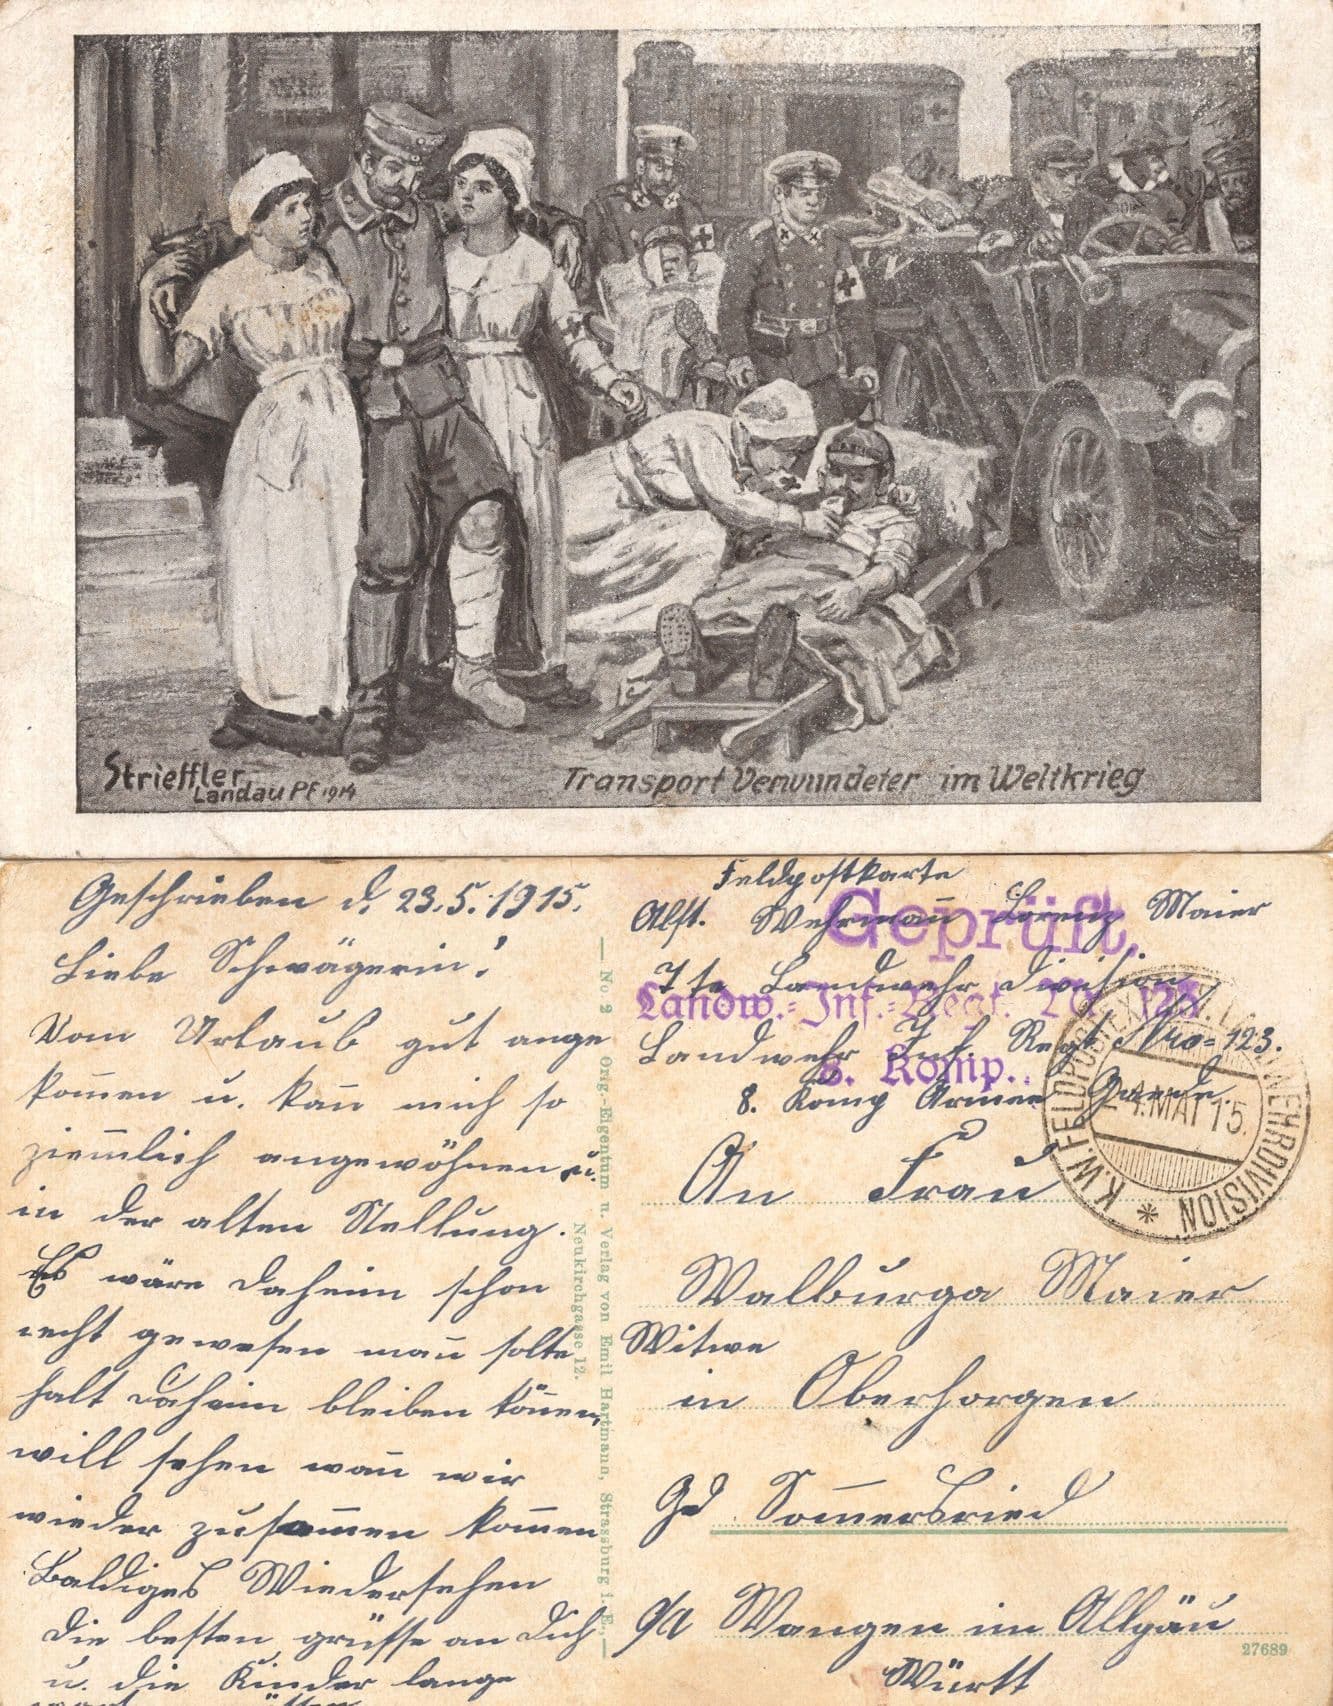 Strieffler
Landau Pf 1914
Transport Verwundeter im Weltkrieg
Geschrieben d. 23.5.1915.
Liebe Schwägerin!
Vom Urlaub gut ange
kom̄en u. kan̄ mich so
ziem̄lich angewöhnen u.
in der alten Stellung.
Es wäre daheim schon
recht gewesen man̄ solte
halt daheim bleiben kön̄en,
will sehen wan̄ wir
wieder zusam̄en kom̄en
Baldiges Wiedersehen
die besten grüsse an Dich
u. die Kinder
No 2 Orig.-Eigentum u. Verlag von Emil Hartmann, Strassburg i. E.,
Neukirchgasse 12.
Feldpostkarte
Abst. Wehrman̄ Lorenz Maier
7te Landwehr Division
Landwehr Inf. Regt Nro 123.
8. Komp Armee Gaede.
Geprüft.
Landw.-Inf.-Regt. No. 123
8. Komp.
K.W. FELDPOSTEXP. LANDWEHRDIVISION
24.MAI 15.
An Frau
Walburga Maier
Witwe
in Oberhorgen
Gd Som̄ersried
O/A Wangen im Allgäu
Württ
27689